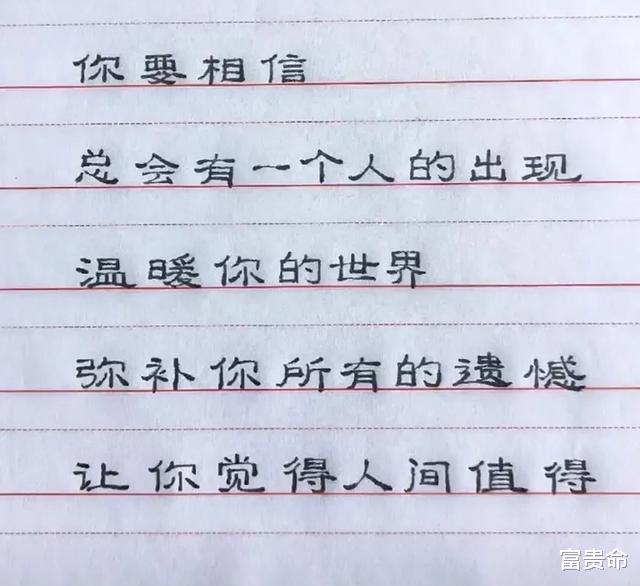 你要相信
总会有一个人的出现
温暖你的世界
弥补你所有的遗憾
让你觉得人间值得
富贵命